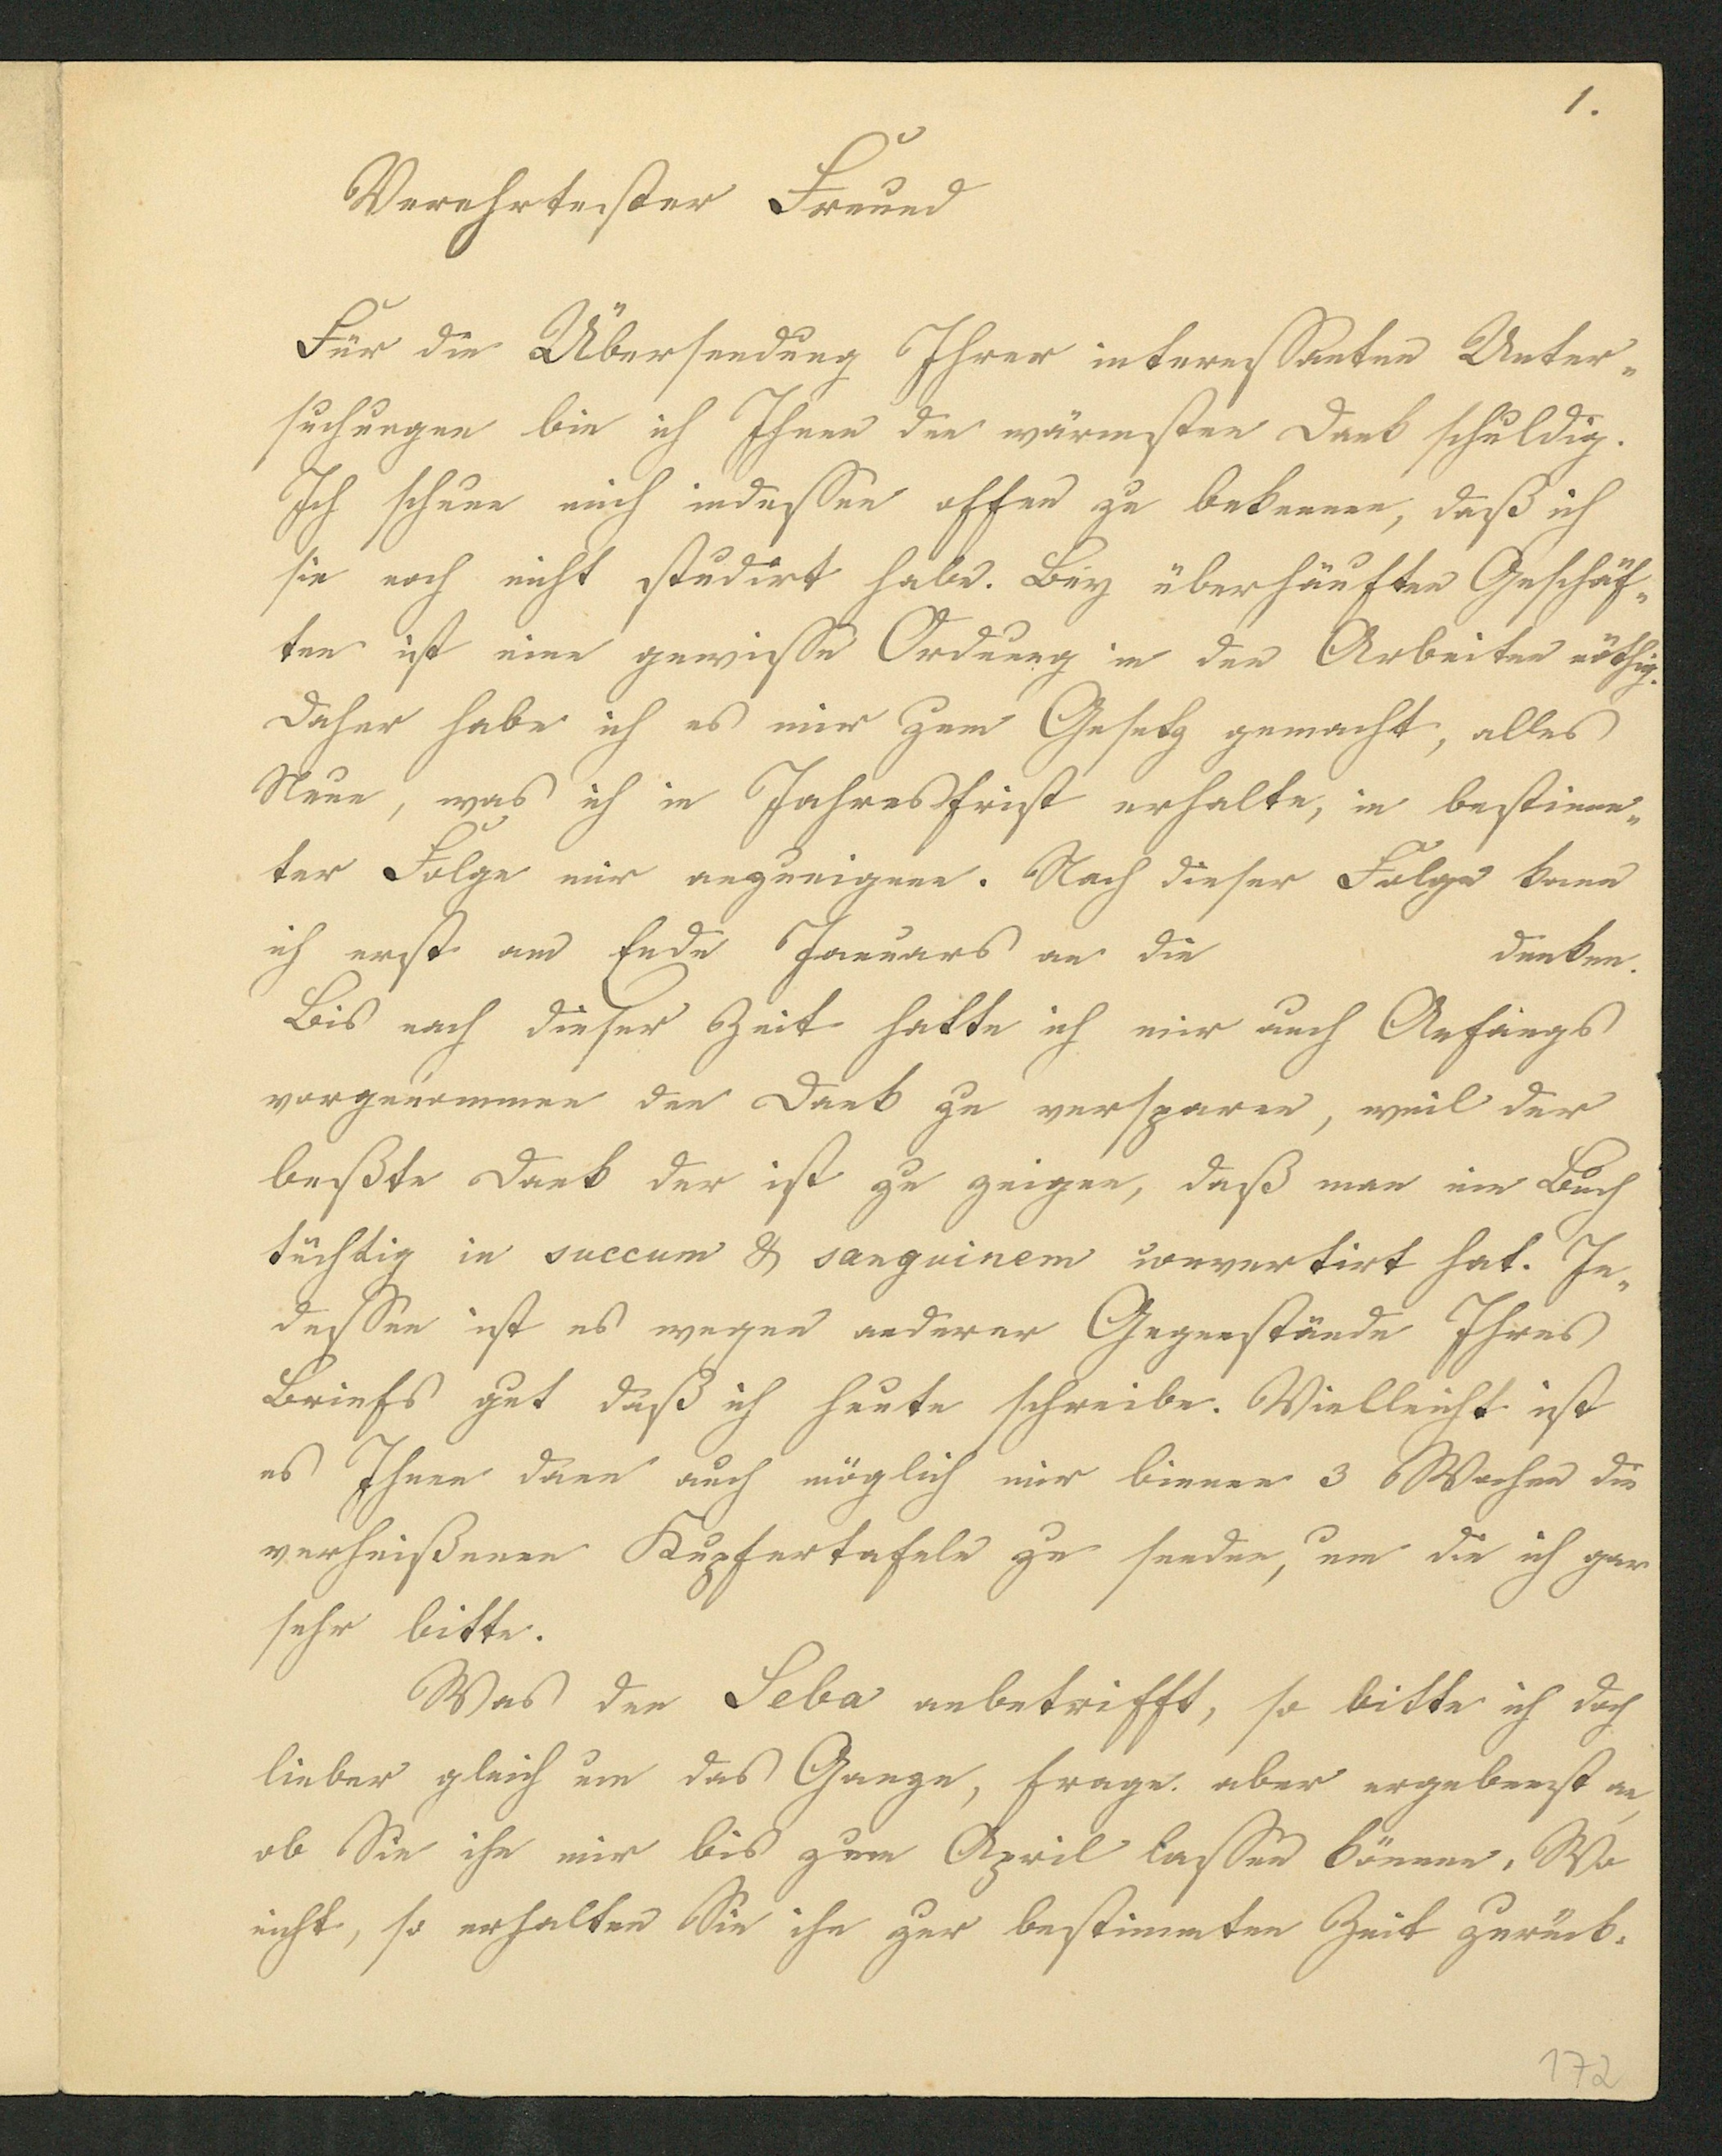 1.
Verehrtester Freund
Für die Übersendung Ihrer interessanten Unter-
suchungen bin ich Ihnen den wärmsten Dank schuldig.
Ich scheue mich indessen offen zu bekennen, daß ich
sie noch nicht studirt habe. Bey überhäuften Geschäf-
ten ist eine gewisse Ordnung in den Arbeiten nöthig.
Daher habe ich es mir zum Gesetz gemacht, alles
Neue, was ich in Jahresfrist erhalte, in bestimm-
ter Folge mir anzueignen. Nach dieser Folge kann
ich erst am Ende Januars an die denken.
Bis nach dieser Zeit hatte ich mir auch Anfangs
vorgenommen den Dank zu versparen, weil der
beßte Dank der ist zu zeigen, daß man ein Buch
tüchtig in succum & sanguinem convertirt hat. In-
dessen ist es wegen anderer Gegenstände Ihres
Briefs gut daß ich heute schreibe. Vielleicht ist
es Ihnen dann auch möglich mir binnen 3 Wochen die
verheißenen Kupfertafeln zu senden, um die ich gar
sehr bitte.
Was den Seba anbetrifft, so bitte ich doch
lieber gleich um das Ganze, frage aber ergebenst an,
ob Sie ihn mir bis zum April lassen können. Wo
nicht, so erhalten Sie ihn zur bestimmten Zeit zurück.
172